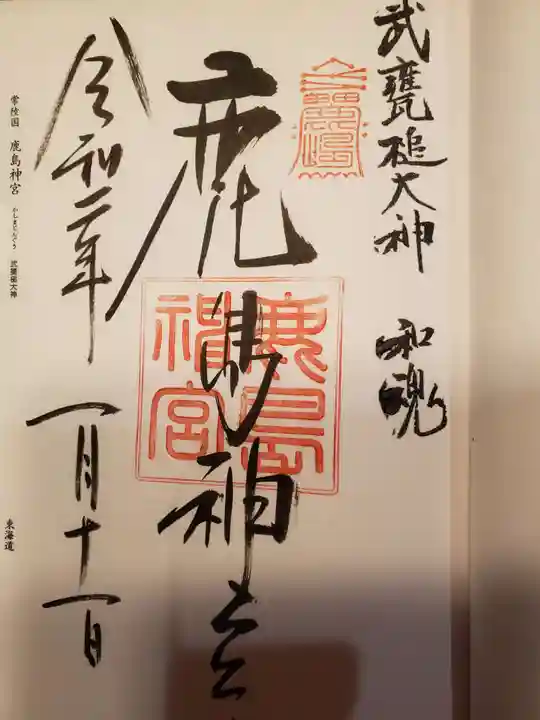 武甕槌大神 和魂
鹿島神宮
鹿島神宮
令和二年 一月十一日
常陸国 鹿島神宮 かしまじんぐう 武甕槌大神
東海道